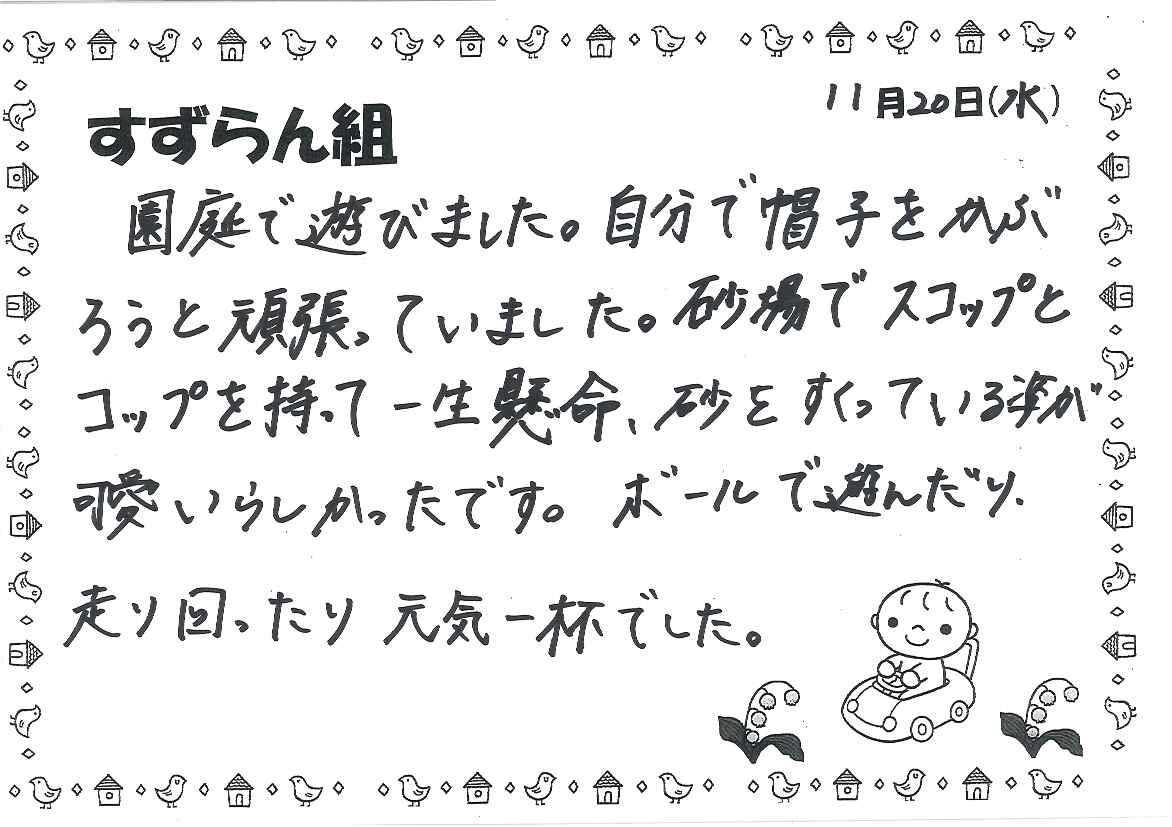 11月20日(水)
すずらん組
園庭で遊びました。自分で帽子をかぶ
ろうと頑張っていました。砂場でスコップと
コップを持って一生懸命、砂をすくっている姿が
可愛いらしかったです。ボールで遊んだり、
走り回ったり元気一杯でした。